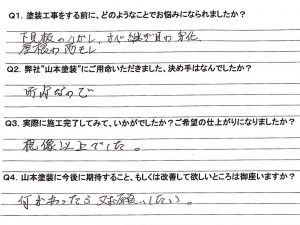 Q1. 塗装工事をする前に、どのようなことでお悩みになられましたか?
下見板のハガレ、サビ継ぎ目の劣化、
屋根の雨モレ
Q2. 弊社"山本塗装"にご用命いただきました、決め手はなんでしたか?
町内なので
Q3. 実際に施工完了してみて、いかがでしたか?ご希望の仕上がりになりましたか?
想像以上でした。
Q4. 山本塗装に今後に期待すること、もしくは改善して欲しいところは御座いますか?
何かあったら又お願いしたい。